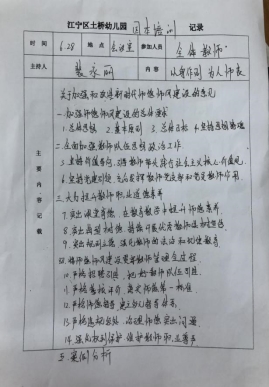 江宁区土桥幼儿园 园本培训 记录
时间 6.28 地点 会议室 参加人员 全体教师
主持人 裴永丽 内容 以身作则 为人师表
主要内容记载
关于加强和改进新时代师德师风建设的意见
一、加强师德师风建设的总体要求
1. 总体思路 2. 基本原则 3. 总体目标 4. 坚持思想铸魂
二、全面加强教师队伍思想政治工作
5. 坚持价值导向, 引导教师带头践行社会主义核心价值观
6. 坚持党建引领, 充分发挥教师党支部和党员教师作用
三、大力提升教师职业道德素养
7. 突出课堂育德, 在教育教学中提升师德素养
8. 突出典型树德, 持续开展优秀教师选树宣传
9. 突出规则立德, 强化教师的法治和纪律教育
四、将师德师风建设要求贯穿教师管理全过程
10. 严格招聘引进, 把好教师队伍入口
11. 严格考核评价, 落实师德第一标准
12. 严格师德督导, 建立多元监督体系
13. 严格违规惩处, 治理师德突出问题
14. 强化权利保护, 维护教师职业尊严
五、案例分析